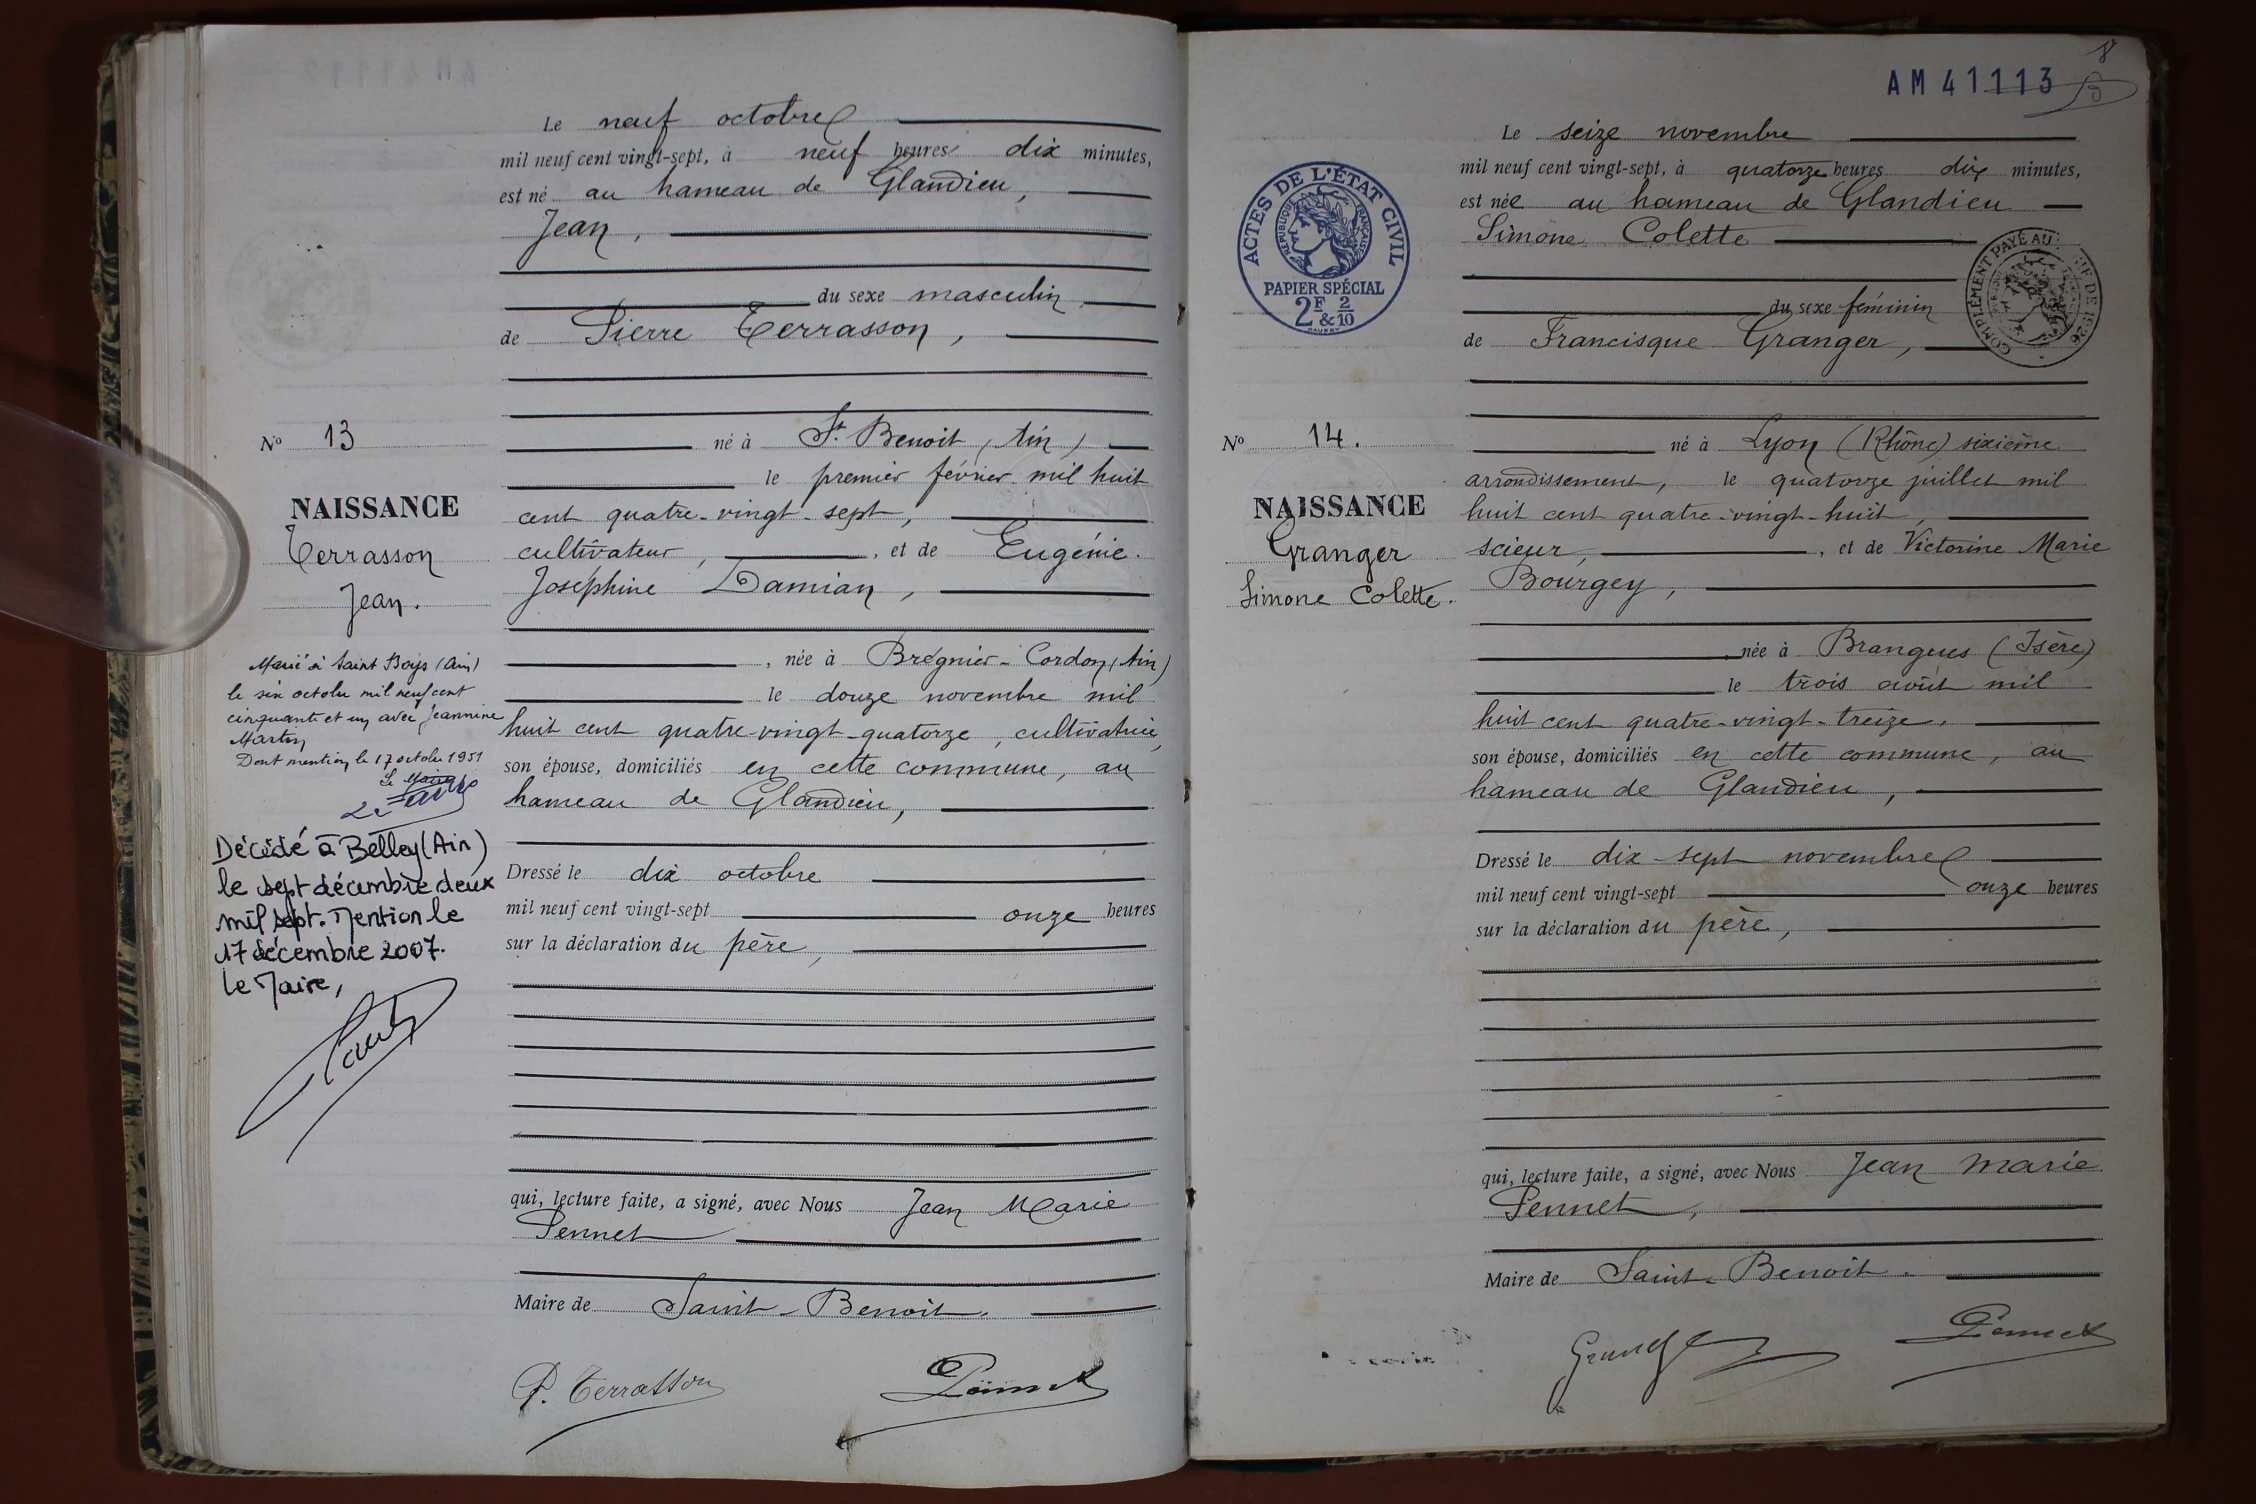 Le neuf octobre
mil neuf cent vingt-sept, à neuf heures dix minutes,
est né au hameau de Glandieu,
Jean,
du sexe masculin
de Pierre Terrasson,
né à St. Benoit (Ain)
le premier février mil huit
cent quatre-vingt-sept,
cultivateur, , et de Eugénie
Joséphine Damian,
, née à Brégnier-Cordon (Ain)
le douze novembre mil
huit cent quatre-vingt-quatorze, cultivatrice,
son épouse, domiciliés en cette commune, au
hameau de Glandieu,
Dressé le dix octobre
mil neuf cent vingt-sept onze heures
sur la déclaration du père,
qui, lecture faite, a signé, avec Nous Jean Marie
Pennet
Maire de Saint-Benoit.
P. Terrasson
Pennet
No 13
NAISSANCE
Terrasson
Jean.
Marié à Saint Bois (Ain)
le six octobre mil neuf cent
cinquante et un avec Jeannine
Martin
Dont mention le 17 octobre 1951
Le Maire
Décédé à Belley (Ain)
le sept décembre deux
mil sept. Mention le
17 décembre 2007.
Le Maire,
AM 41113
8
Le seize novembre
mil neuf cent vingt-sept, à quatorze heures dix minutes,
est née au hameau de Glandieu
Simone Colette
du sexe féminin
de Francisque Granger,
né à Lyon (Rhône) sixième
arrondissement, le quatorze juillet mil
huit cent quatre-vingt-huit,
scieur, , et de Victorine Marie
Bourgey,
, née à Brangues (Isère)
le trois août mil
huit cent quatre-vingt-treize,
son épouse, domiciliés en cette commune, au
hameau de Glandieu,
Dressé le dix-sept novembre
mil neuf cent vingt-sept onze heures
sur la déclaration du père,
qui, lecture faite, a signé, avec Nous Jean Marie
Pennet,
Maire de Saint-Benoit.
Granger
Pennet
ACTES DE L'ÉTAT CIVIL
RÉPUBLIQUE FRANÇAISE
PAPIER SPÉCIAL
2F & 2/10
COMPLÉMENT PAYÉ AU DE 1926
No 14.
NAISSANCE
Granger
Simone Colette.